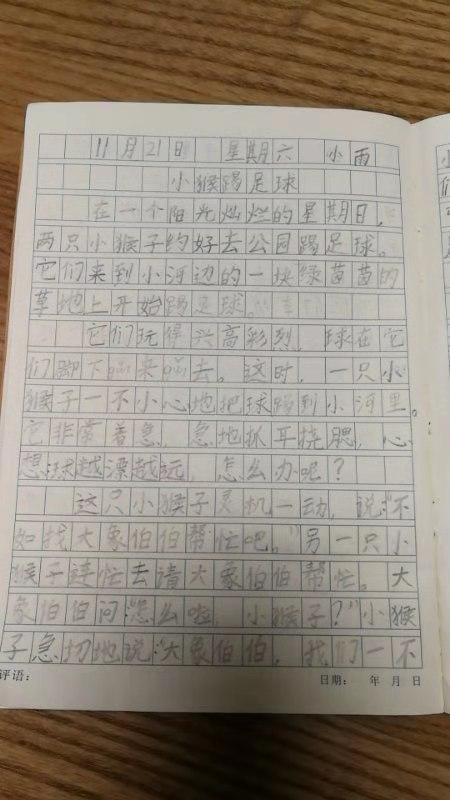 11月21日 星期六 小雨
小猴踢足球
在一个阳光灿烂的星期日，
两只小猴子约好去公园踢足球。
它们来到小河边的一块绿茵茵的
草地上开始踢足球。
它们玩得兴高彩烈，球在它
们脚下品来品去。这时，一只小
猴子一不小心地把球踢到小河里。
它非常着急，急地抓耳挠腮，心
想球越漂越远，怎么办呢？
这只小猴子灵机一动，说：“不
如找大象伯伯帮忙吧。”另一只小
猴子连忙去请大象伯伯帮忙。大
象伯伯问：“怎么啦，小猴子？”小猴
子急切地说：“大象伯伯，我们一不
评语： 日期： 年 月 日